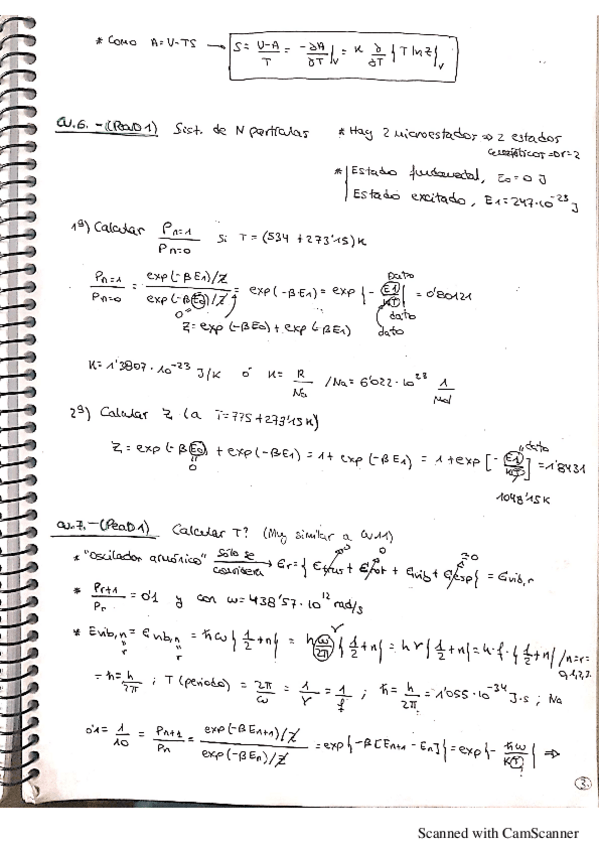 * Como A=U-TS → S = U-A/T = -∂A/∂T|v = K ∂/∂T { T lnZ }v
CU.6.-(PeaD1) Sist. de N partículas * Hay 2 microestados ⇒ 2 estados
cuánticos ⇒ r=2
* Estado fundamental, E0 = 0 J
Estado excitado, E1 = 247·10^-23 J
1º) Calcular Pn=1/Pn=0 si T = (534 + 273'15) K
Pn=1/Pn=0 = exp(-βE1)/Z / exp(-βE0)/Z = exp(-βE1) = exp{-E1/KT} = 0'80121
dato
0
dato
Z = exp(-βE0) + exp(-βE1)
K = 1'3807·10^-23 J/K ó K = R/Na /Na = 6'022·10^23 1/mol
2º) Calcular Z (a T=775+273'15 K)
Z = exp(-βE0) + exp(-βE1) = 1 + exp(-βE1) = 1 + exp[-E1/KT] = 1'8431
dato
0
1048'15 K
CU.7.-(PeaD1) Calcular T? (Muy similar a CU11)
* "Oscilador armónico" Sólo se considera → Er = { Etras + Erot + Evib + Eesp } = Evib,r
* Pr+1/Pr = 0'1 y con ω = 438'57·10^12 rad/s
* Evib,n = Evib,n = ħω{1/2+n} = h ω/2π {1/2+n} = hν{1/2+n} = h·f·{1/2+n} /n=r=
0,1,2,3.
= ħ = h/2π ; T (periodo) = 2π/ω = 1/ν = 1/f ; ħ = h/2π = 1'055·10^-34 J·s ; Na
0'1 = 1/10 = Pn+1/Pn = exp(-βEn+1)/Z / exp(-βEn)/Z = exp{-β[En+1 - En]} = exp{-ħω/KT} ⇒
3.
Scanned with CamScanner